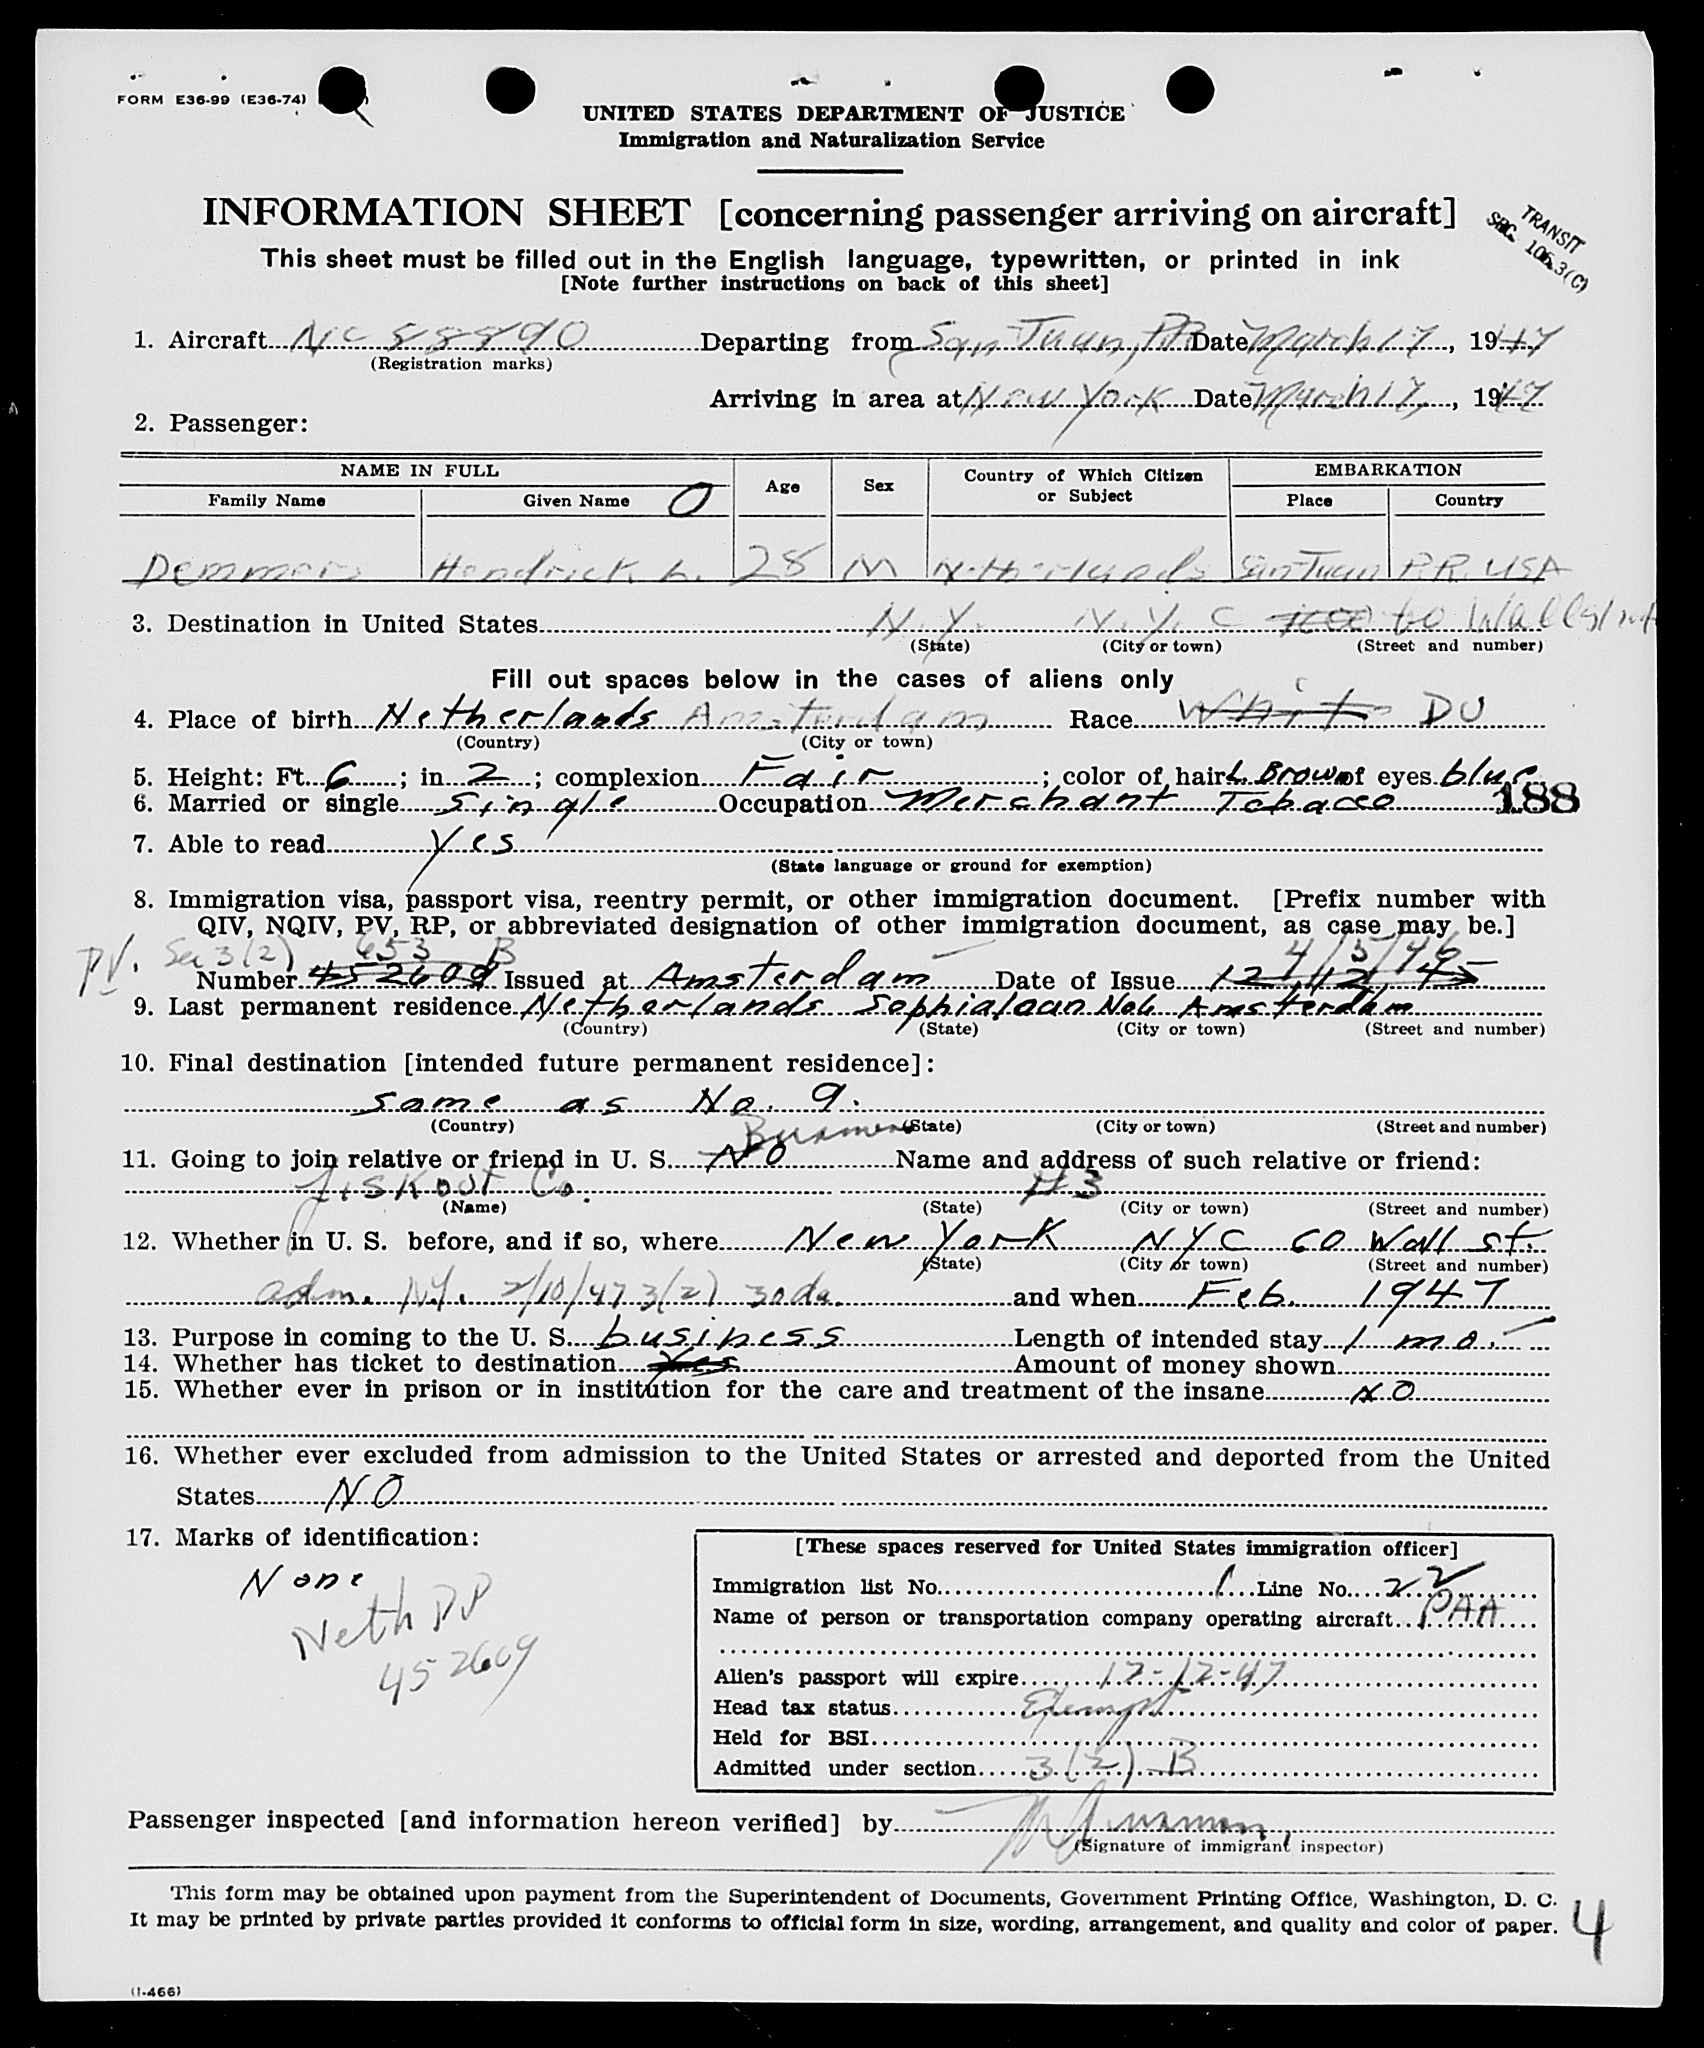 FORM E36-99 (E36-74)
UNITED STATES DEPARTMENT OF JUSTICE
Immigration and Naturalization Service
INFORMATION SHEET [concerning passenger arriving on aircraft]
TRANSIT
SEC. 106.3(C)
This sheet must be filled out in the English language, typewritten, or printed in ink
[Note further instructions on back of this sheet]
1. Aircraft NC 88890 Departing from San Juan, P.R. Date March 17, 1947
(Registration marks)
Arriving in area at New York Date March 17, 1947
2. Passenger:
NAME IN FULL Age Sex Country of Which Citizen or Subject EMBARKATION
Family Name Given Name O Place Country
Demmers Hendrick L. 28 M Netherlands San Juan P.R. USA
3. Destination in United States N.Y. N.Y.C 60 Wall St
(State) (City or town) (Street and number)
Fill out spaces below in the cases of aliens only
4. Place of birth Netherlands Amsterdam Race White DU
(Country) (City or town)
5. Height: Ft. 6; in 2; complexion Fair; color of hair L. Brown of eyes blue
6. Married or single Single Occupation Merchant Tobacco 188
7. Able to read Yes
(State language or ground for exemption)
8. Immigration visa, passport visa, reentry permit, or other immigration document. [Prefix number with
QIV, NQIV, PV, RP, or abbreviated designation of other immigration document, as case may be.]
PV. Sec 3(2) 653 B 4/5/46
Number 452609 Issued at Amsterdam Date of Issue 12/12/45
9. Last permanent residence Netherlands Sophialaan No6 Amsterdam
(Country) (State) (City or town) (Street and number)
10. Final destination [intended future permanent residence]:
same as No. 9.
(Country) (State) (City or town) (Street and number)
11. Going to join relative or friend in U. S. No Name and address of such relative or friend:
Co. #3
(Name) (State) (City or town) (Street and number)
12. Whether in U. S. before, and if so, where New York NYC 60 Wall St.
(State) (City or town) (Street and number)
adm. N.Y. 2/10/47 3(2) 30 da. and when Feb. 1947
13. Purpose in coming to the U. S. business Length of intended stay 1 mo.
14. Whether has ticket to destination Yes Amount of money shown
15. Whether ever in prison or in institution for the care and treatment of the insane NO
16. Whether ever excluded from admission to the United States or arrested and deported from the United
States NO
17. Marks of identification:
None
Neth PP
452609
[These spaces reserved for United States immigration officer]
Immigration list No. 1 Line No. 22
Name of person or transportation company operating aircraft PAA
Alien's passport will expire 12-12-47
Head tax status Exempt
Held for BSI
Admitted under section 3(2) B
Passenger inspected [and information hereon verified] by
(Signature of immigrant inspector)
This form may be obtained upon payment from the Superintendent of Documents, Government Printing Office, Washington, D. C.
It may be printed by private parties provided it conforms to official form in size, wording, arrangement, and quality and color of paper.
4
(I-466)